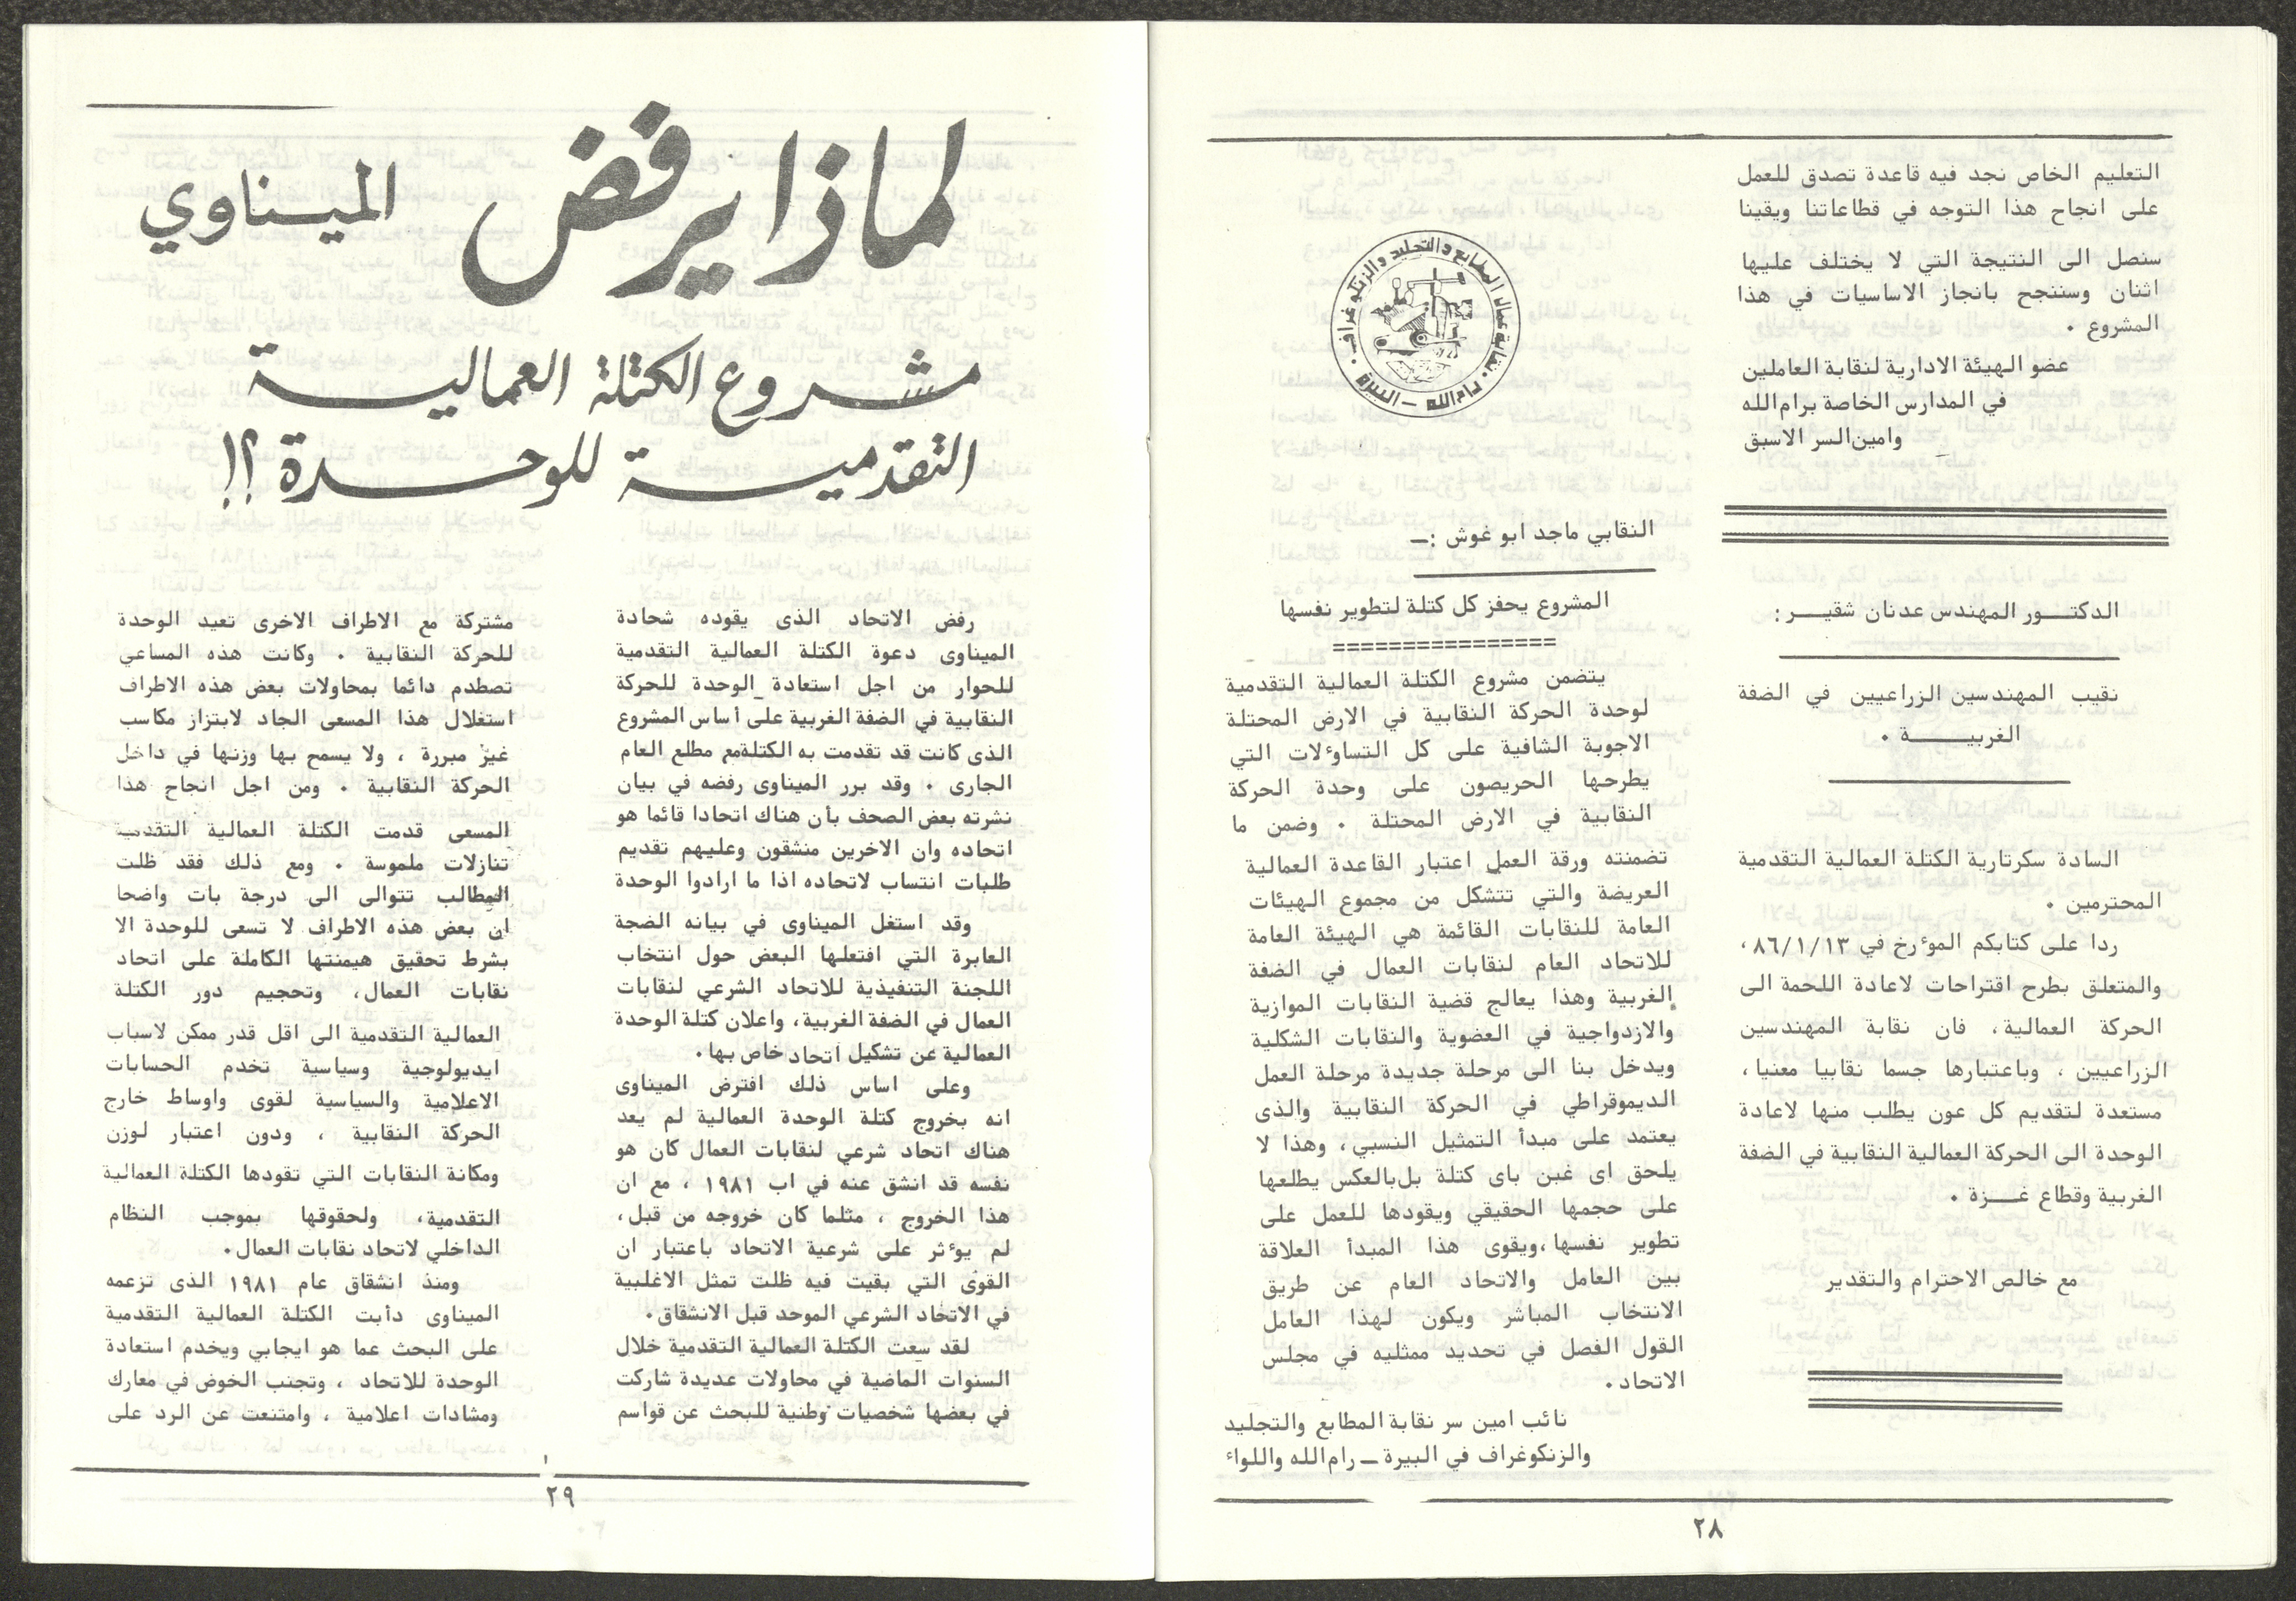 التعليم الخاص نجد فيه قاعدة تصدق للعمل
على انجاح هذا التوجه في قطاعاتنا ويقينا
سنصل الى النتيجة التي لا يختلف عليها
اثنان وسننجح بانجاز الاساسيات في هذا
المشروع .
عضو الهيئة الادارية لنقابة العاملين
في المدارس الخاصة برام الله
وامين السر الاسبق
الدكتـــور المهندس عدنان شقيـــر :
نقيب المهندسين الزراعيين في الضفة
الغربيـــــة .
السادة سكرتارية الكتلة العمالية التقدمية
المحترمين .
ردا على كتابكم الموٴرخ في ٨٦/١/١٣ ،
والمتعلق بطرح اقتراحات لاعادة اللحمة الى
الحركة العمالية، فان نقابة المهندسين
الزراعيين ، وباعتبارها جسما نقابيا معنيا،
مستعدة لتقديم كل عون يطلب منها لاعادة
الوحدة الى الحركة العمالية النقابية في الضفة
الغربية وقطاع غـــزة .
مع خالص الاحترام والتقدير
نقابة عمال المطابع والتجليد والزنكوغراف
رام الله – البيرة
النقابي ماجد ابو غوش :–
المشروع يحفز كل كتلة لتطوير نفسها
================
يتضمن مشروع الكتلة العمالية التقدمية
لوحدة الحركة النقابية في الارض المحتلة
الاجوبة الشافية على كل التساوٴلات التي
يطرحها الحريصون على وحدة الحركة
النقابية في الارض المحتلة . وضمن ما
تضمنته ورقة العمل اعتبار القاعدة العمالية
العريضة والتي تتشكل من مجموع الهيئات
العامة للنقابات القائمة هي الهيئة العامة
للاتحاد العام لنقابات العمال في الضفة
الغربية وهذا يعالج قضية النقابات الموازية
والازدواجية في العضوية والنقابات الشكلية
ويدخل بنا الى مرحلة جديدة مرحلة العمل
الديموقراطي في الحركة النقابية والذى
يعتمد على مبدأ التمثيل النسبي، وهذا لا
يلحق اى غبن باى كتلة بل بالعكس يطلعها
على حجمها الحقيقي ويقودها للعمل على
تطوير نفسها ،ويقوى هذا المبدأ العلاقة
بين العامل والاتحاد العام عن طريق
الانتخاب المباشر ويكون لهذا العامل
القول الفصل في تحديد ممثليه في مجلس
الاتحاد .
نائب امين سر نقابة المطابع والتجليد
والزنكوغراف في البيرة – رام الله واللواء
٢٨
لماذا يرفض الميناوي
مشروع الكتلة العمالية
التقدمية للوحدة ؟!
رفض الاتحاد الذى يقوده شحادة
الميناوى دعوة الكتلة العمالية التقدمية
للحوار من اجل استعادة الوحدة للحركة
النقابية في الضفة الغربية على أساس المشروع
الذى كانت قد تقدمت به الكتلة مع مطلع العام
الجارى . وقد برر الميناوى رفضه في بيان
نشرته بعض الصحف بأن هناك اتحادا قائما هو
اتحاده وان الاخرين منشقون وعليهم تقديم
طلبات انتساب لاتحاده اذا ما ارادوا الوحدة
وقد استغل الميناوى في بيانه الضجة
العابرة التي افتعلها البعض حول انتخاب
اللجنة التنفيذية للاتحاد الشرعي لنقابات
العمال في الضفة الغربية، واعلان كتلة الوحدة
العمالية عن تشكيل اتحاد خاص بها .
وعلى اساس ذلك افترض الميناوى
انه بخروج كتلة الوحدة العمالية لم يعد
هناك اتحاد شرعي لنقابات العمال كان هو
نفسه قد انشق عنه في اب ١٩٨١ ، مع ان
هذا الخروج ، مثلما كان خروجه من قبل،
لم يوٴثر على شرعية الاتحاد باعتبار ان
القوى التي بقيت فيه ظلت تمثل الاغلبية
في الاتحاد الشرعي الموحد قبل الانشقاق .
لقد سعت الكتلة العمالية التقدمية خلال
السنوات الماضية في محاولات عديدة شاركت
في بعضها شخصيات وطنية للبحث عن قواسم
مشتركة مع الاطراف الاخرى تعيد الوحدة
للحركة النقابية . وكانت هذه المساعي
تصطدم دائما بمحاولات بعض هذه الاطراف
استغلال هذا المسعى الجاد لابتزاز مكاسب
غير مبررة ، ولا يسمح بها وزنها في داخل
الحركة النقابية . ومن اجل انجاح هذا
المسعى قدمت الكتلة العمالية التقدمية
تنازلات ملموسة . ومع ذلك فقد ظلت
المطالب تتوالى الى درجة بات واضحا
ان بعض هذه الاطراف لا تسعى للوحدة الا
بشرط تحقيق هيمنتها الكاملة على اتحاد
نقابات العمال، وتحجيم دور الكتلة
العمالية التقدمية الى اقل قدر ممكن لاسباب
ايديولوجية وسياسية تخدم الحسابات
الاعلامية والسياسية لقوى واوساط خارج
الحركة النقابية ، ودون اعتبار لوزن
ومكانة النقابات التي تقودها الكتلة العمالية
التقدمية، ولحقوقها بموجب النظام
الداخلي لاتحاد نقابات العمال .
ومنذ انشقاق عام ١٩٨١ الذى تزعمه
الميناوى دأبت الكتلة العمالية التقدمية
على البحث عما هو ايجابي ويخدم استعادة
الوحدة للاتحاد ، وتجنب الخوض في معارك
ومشادات اعلامية ، وامتنعت عن الرد على
٢٩